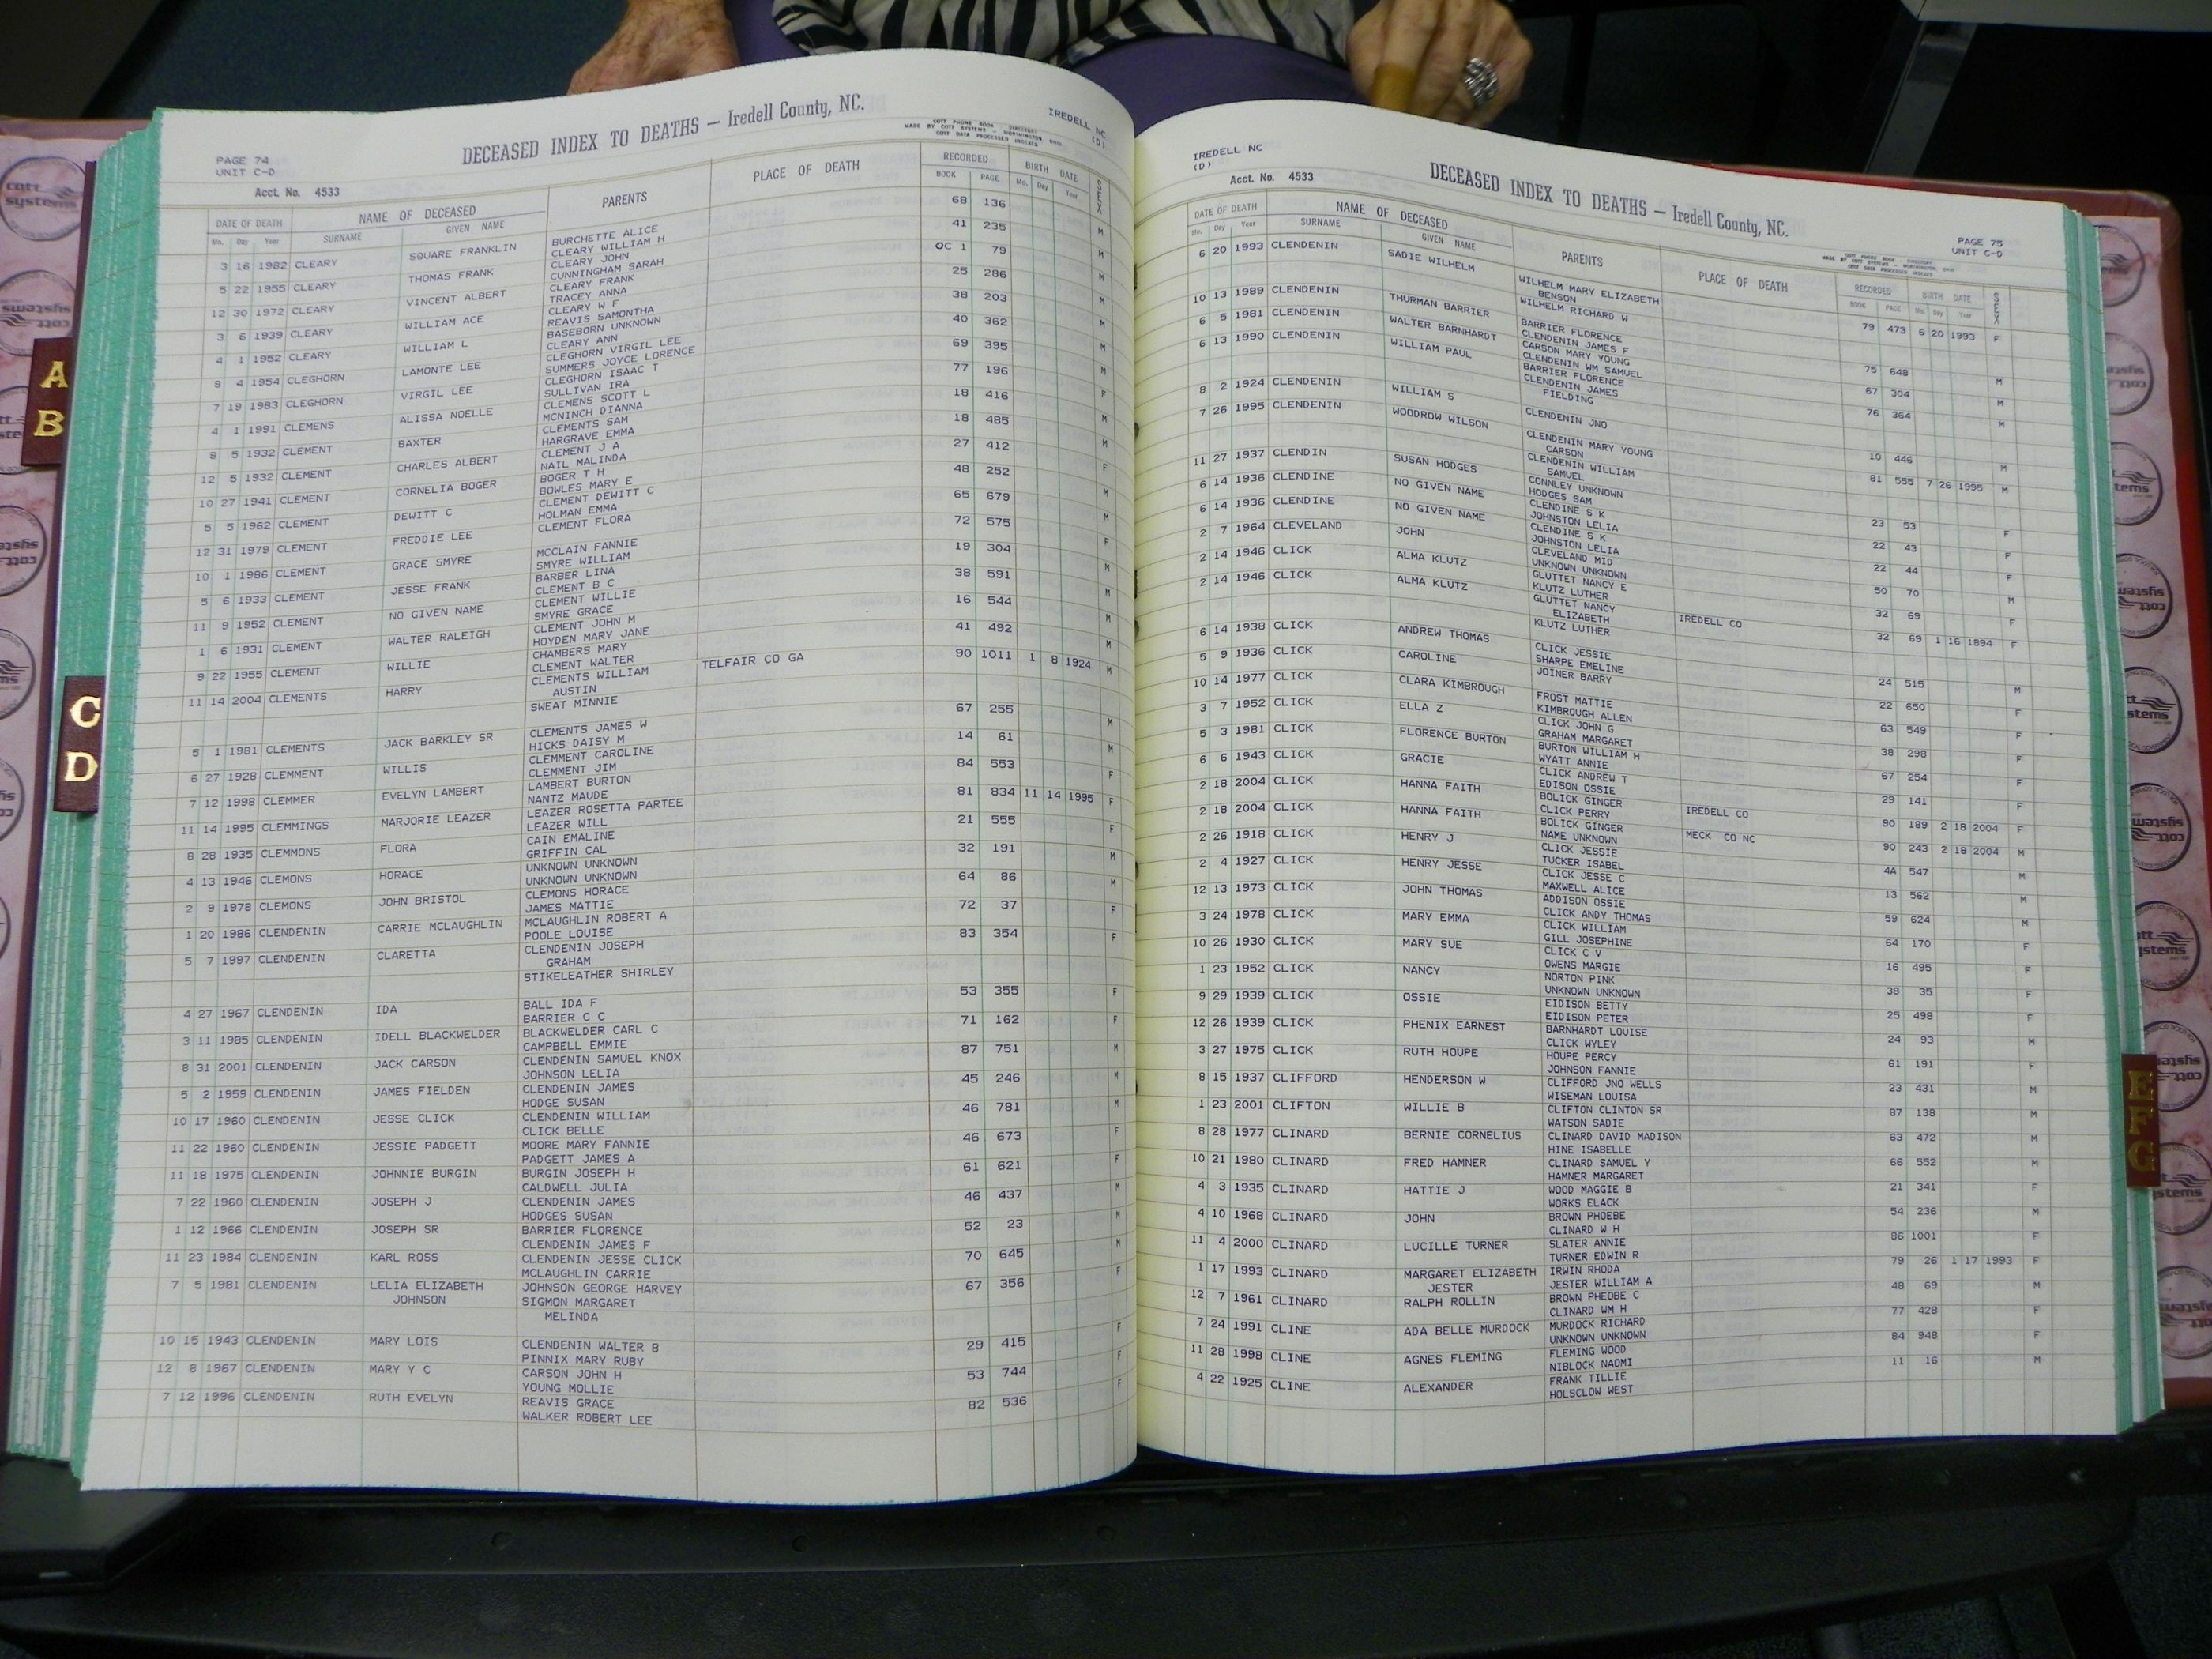 DECEASED INDEX TO DEATHS — Iredell County, NC.
IREDELL NC
(D)
MADE BY COTT SYSTEMS - WORTHINGTON, OHIO
PAGE 74
UNIT C-D
Acct. No. 4533
DATE OF DEATH NAME OF DECEASED PARENTS PLACE OF DEATH RECORDED BIRTH DATE SEX
Mo. Day Year SURNAME GIVEN NAME BOOK PAGE Mo. Day Year
3 16 1982 CLEARY SQUARE FRANKLIN BURCHETTE ALICE 68 136 M
CLEARY WILLIAM H
5 22 1955 CLEARY THOMAS FRANK CLEARY JOHN 41 235 M
CUNNINGHAM SARAH
12 30 1972 CLEARY VINCENT ALBERT CLEARY FRANK OC 1 79 M
TRACEY ANNA
3 6 1939 CLEARY WILLIAM ACE CLEARY W F 25 286 M
REAVIS SAMONTHA
4 1 1952 CLEARY WILLIAM L BASEBORN UNKNOWN 38 203 M
CLEARY ANN
8 4 1954 CLEGHORN LAMONTE LEE CLEGHORN VIRGIL LEE 40 362 M
SUMMERS JOYCE LORENCE
7 19 1983 CLEGHORN VIRGIL LEE CLEGHORN ISAAC T 69 395 M
SULLIVAN IRA
4 1 1991 CLEMENS ALISSA NOELLE CLEMENS SCOTT L 77 196 F
MCNINCH DIANNA
8 5 1932 CLEMENT BAXTER CLEMENTS SAM 18 416 M
HARGRAVE EMMA
12 5 1932 CLEMENT CHARLES ALBERT CLEMENT J A 18 485 M
NAIL MALINDA
10 27 1941 CLEMENT CORNELIA BOGER BOGER T H 27 412 F
BOWLES MARY E
5 5 1962 CLEMENT DEWITT C CLEMENT DEWITT C 48 252 M
HOLMAN EMMA
12 31 1979 CLEMENT FREDDIE LEE CLEMENT FLORA 65 679 M
10 1 1986 CLEMENT GRACE SMYRE MCCLAIN FANNIE 72 575 F
SMYRE WILLIAM
5 6 1933 CLEMENT JESSE FRANK BARBER LINA 19 304 M
CLEMENT B C
11 9 1952 CLEMENT NO GIVEN NAME CLEMENT WILLIE 38 591 M
SMYRE GRACE
1 6 1931 CLEMENT WALTER RALEIGH CLEMENT JOHN M 16 544 M
HOYDEN MARY JANE
9 22 1955 CLEMENT WILLIE CHAMBERS MARY 41 492 M
CLEMENT WALTER
11 14 2004 CLEMENTS HARRY CLEMENTS WILLIAM TELFAIR CO GA 90 1011 1 8 1924 M
AUSTIN
SWEAT MINNIE
5 1 1981 CLEMENTS JACK BARKLEY SR CLEMENTS JAMES W 67 255 M
HICKS DAISY M
6 27 1928 CLEMMENT WILLIS CLEMMENT CAROLINE 14 61 M
CLEMMENT JIM
7 12 1998 CLEMMER EVELYN LAMBERT LAMBERT BURTON 84 553 F
NANTZ MAUDE
11 14 1995 CLEMMINGS MARJORIE LEAZER LEAZER ROSETTA PARTEE 81 834 11 14 1995 F
LEAZER WILL
8 28 1935 CLEMMONS FLORA CAIN EMALINE 21 555 F
GRIFFIN CAL
4 13 1946 CLEMONS HORACE UNKNOWN UNKNOWN 32 191 M
UNKNOWN UNKNOWN
2 9 1978 CLEMONS JOHN BRISTOL CLEMONS HORACE 64 86 M
JAMES MATTIE
1 20 1986 CLENDENIN CARRIE MCLAUGHLIN MCLAUGHLIN ROBERT A 72 37 F
POOLE LOUISE
5 7 1997 CLENDENIN CLARETTA CLENDENIN JOSEPH 83 354 F
GRAHAM
STIKELEATHER SHIRLEY
4 27 1967 CLENDENIN IDA BALL IDA F 53 355 F
BARRIER C C
3 11 1985 CLENDENIN IDELL BLACKWELDER BLACKWELDER CARL C 71 162 F
CAMPBELL EMMIE
8 31 2001 CLENDENIN JACK CARSON CLENDENIN SAMUEL KNOX 87 751 M
JOHNSON LELIA
5 2 1959 CLENDENIN JAMES FIELDEN CLENDENIN JAMES 45 246 M
HODGE SUSAN
10 17 1960 CLENDENIN JESSE CLICK CLENDENIN WILLIAM 46 781 M
CLICK BELLE
11 22 1960 CLENDENIN JESSIE PADGETT MOORE MARY FANNIE 46 673 F
PADGETT JAMES A
11 18 1975 CLENDENIN JOHNNIE BURGIN BURGIN JOSEPH H 61 621 F
CALDWELL JULIA
7 22 1960 CLENDENIN JOSEPH J CLENDENIN JAMES 46 437 M
HODGES SUSAN
1 12 1966 CLENDENIN JOSEPH SR BARRIER FLORENCE 52 23 M
CLENDENIN JAMES F
11 23 1984 CLENDENIN KARL ROSS CLENDENIN JESSE CLICK 70 645 M
MCLAUGHLIN CARRIE
7 5 1981 CLENDENIN LELIA ELIZABETH JOHNSON GEORGE HARVEY 67 356 F
JOHNSON SIGMON MARGARET
MELINDA
10 15 1943 CLENDENIN MARY LOIS CLENDENIN WALTER B 29 415 F
PINNIX MARY RUBY
12 8 1967 CLENDENIN MARY Y C CARSON JOHN H 53 744 F
YOUNG MOLLIE
7 12 1996 CLENDENIN RUTH EVELYN REAVIS GRACE 82 536 F
WALKER ROBERT LEE
IREDELL NC
(D)
DECEASED INDEX TO DEATHS — Iredell County, NC.
PAGE 75
UNIT C-D
Acct. No. 4533
DATE OF DEATH NAME OF DECEASED PARENTS PLACE OF DEATH RECORDED BIRTH DATE SEX
Mo. Day Year SURNAME GIVEN NAME BOOK PAGE Mo. Day Year
6 20 1993 CLENDENIN SADIE WILHELM WILHELM MARY ELIZABETH 79 473 6 20 1993 F
BENSON
WILHELM RICHARD W
10 13 1989 CLENDENIN THURMAN BARRIER BARRIER FLORENCE 75 648 M
CLENDENIN JAMES F
6 5 1981 CLENDENIN WALTER BARNHARDT CARSON MARY YOUNG 67 304 M
CLENDENIN WM SAMUEL
6 13 1990 CLENDENIN WILLIAM PAUL BARRIER FLORENCE 76 364 M
CLENDENIN JAMES
FIELDING
8 2 1924 CLENDENIN WILLIAM S CLENDENIN JNO 10 446 M
7 26 1995 CLENDENIN WOODROW WILSON CLENDENIN MARY YOUNG 81 555 7 26 1995 M
CARSON
CLENDENIN WILLIAM
SAMUEL
11 27 1937 CLENDIN SUSAN HODGES CONNLEY UNKNOWN 23 53 F
HODGES SAM
6 14 1936 CLENDINE NO GIVEN NAME CLENDINE S K 22 43 F
JOHNSTON LELIA
6 14 1936 CLENDINE NO GIVEN NAME CLENDINE S K 22 44 F
JOHNSTON LELIA
2 7 1964 CLEVELAND JOHN CLEVELAND MID 50 70 M
UNKNOWN UNKNOWN
2 14 1946 CLICK ALMA KLUTZ GLUTTET NANCY E 32 69 F
KLUTZ LUTHER
2 14 1946 CLICK ALMA KLUTZ GLUTTET NANCY IREDELL CO 32 69 1 16 1894 F
ELIZABETH
KLUTZ LUTHER
6 14 1938 CLICK ANDREW THOMAS CLICK JESSIE 24 515 M
SHARPE EMELINE
5 9 1936 CLICK CAROLINE JOINER BARRY 22 650 F
10 14 1977 CLICK CLARA KIMBROUGH FROST MATTIE 63 549 F
KIMBROUGH ALLEN
3 7 1952 CLICK ELLA Z CLICK JOHN G 38 298 F
GRAHAM MARGARET
5 3 1981 CLICK FLORENCE BURTON BURTON WILLIAM H 67 254 F
WYATT ANNIE
6 6 1943 CLICK GRACIE CLICK ANDREW T 29 141 F
EDISON OSSIE
2 18 2004 CLICK HANNA FAITH BOLICK GINGER IREDELL CO 90 189 2 18 2004 F
CLICK PERRY
2 18 2004 CLICK HANNA FAITH BOLICK GINGER MECK CO NC 90 243 2 18 2004 M
NAME UNKNOWN
2 26 1918 CLICK HENRY J CLICK JESSIE 4A 547 M
TUCKER ISABEL
2 4 1927 CLICK HENRY JESSE CLICK JESSE C 13 562 M
MAXWELL ALICE
12 13 1973 CLICK JOHN THOMAS ADDISON OSSIE 59 624 M
CLICK ANDY THOMAS
3 24 1978 CLICK MARY EMMA CLICK WILLIAM 64 170 F
GILL JOSEPHINE
10 26 1930 CLICK MARY SUE CLICK C V 16 495 F
OWENS MARGIE
1 23 1952 CLICK NANCY NORTON PINK 38 35 F
UNKNOWN UNKNOWN
9 29 1939 CLICK OSSIE EIDISON BETTY 25 498 F
EIDISON PETER
12 26 1939 CLICK PHENIX EARNEST BARNHARDT LOUISE 24 93 M
CLICK WYLEY
3 27 1975 CLICK RUTH HOUPE HOUPE PERCY 61 191 F
JOHNSON FANNIE
8 15 1937 CLIFFORD HENDERSON W CLIFFORD JNO WELLS 23 431 M
WISEMAN LOUISA
1 23 2001 CLIFTON WILLIE B CLIFTON CLINTON SR 87 138 M
WATSON SADIE
8 28 1977 CLINARD BERNIE CORNELIUS CLINARD DAVID MADISON 63 472 M
HINE ISABELLE
10 21 1980 CLINARD FRED HAMNER CLINARD SAMUEL Y 66 552 M
HAMNER MARGARET
4 3 1935 CLINARD HATTIE J WOOD MAGGIE B 21 341 F
WORKS ELACK
4 10 1968 CLINARD JOHN BROWN PHOEBE 54 236 M
CLINARD W H
11 4 2000 CLINARD LUCILLE TURNER SLATER ANNIE 86 1001 F
TURNER EDWIN R
1 17 1993 CLINARD MARGARET ELIZABETH IRWIN RHODA 79 26 1 17 1993 F
JESTER JESTER WILLIAM A
12 7 1961 CLINARD RALPH ROLLIN BROWN PHEOBE C 48 69 M
CLINARD WM H
7 24 1991 CLINE ADA BELLE MURDOCK MURDOCK RICHARD 77 428 F
UNKNOWN UNKNOWN
11 28 1998 CLINE AGNES FLEMING FLEMING WOOD 84 948 F
NIBLOCK NAOMI
4 22 1925 CLINE ALEXANDER FRANK TILLIE 11 16 M
HOLSCLOW WEST
A
B
C
D
E
F
G
cott
systems